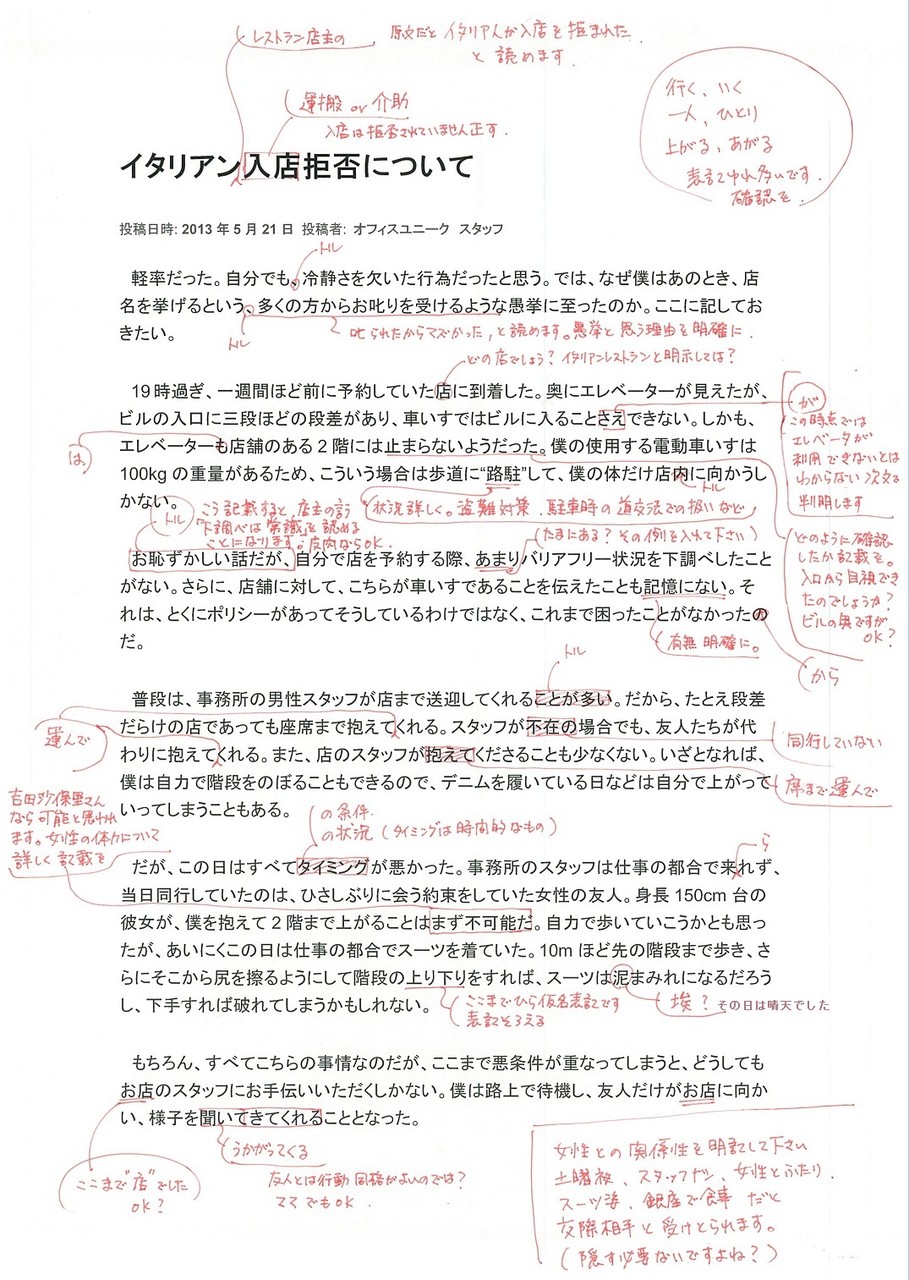 レストラン店主の 原文だとイタリア人が入店を拒まれた
と読めます.
運搬 or 介助
入店は拒否されていません正す.
行く、いく
一人、ひとり
上がる、あがる
表記ゆれ多いです.
確認を.
イタリアン入店拒否について
投稿日時: 2013 年 5 月 21 日 投稿者: オフィスユニーク スタッフ
トル
軽率だった。自分でも、冷静さを欠いた行為だったと思う。では、なぜ僕はあのとき、店
名を挙げるという、多くの方からお叱りを受けるような愚挙に至ったのか。ここに記してお
きたい。
トル
叱られたからマズかった,と読めます。愚挙と思う理由を明確に.
どの店でしょう? イタリアンレストランと明示しては?
19 時過ぎ、一週間ほど前に予約していた店に到着した。奥にエレベーターが見えたが、
ビルの入口に三段ほどの段差があり、車いすではビルに入ることさえできない。しかも、
エレベーターも店舗のある 2 階には止まらないようだった。僕の使用する電動車いすは
100kg の重量があるため、こういう場合は歩道に“路駐”して、僕の体だけ店内に向かうし
かない。
は、
が
この時点では
エレベータが
利用できないとは
わからない次文で
判明します
トル
トル
こう記載すると、店主の言う
「下調べは常識」を認める
ことになります。皮肉ならOK.
状況詳しく。盗難対策.駐車時の道交法での扱いなど
(たまにある? その例を入れて下さい)
お恥ずかしい話だが、自分で店を予約する際、あまりバリアフリー状況を下調べしたこと
がない。さらに、店舗に対して、こちらが車いすであることを伝えたことも記憶にない。そ
れは、とくにポリシーがあってそうしているわけではなく、これまで困ったことがなかったの
だ。
どのように確認
したか記載を。
入口から目視でき
たのでしょうか?
ビルの奥ですが
OK?
有無 明確に。
から
トル
普段は、事務所の男性スタッフが店まで送迎してくれることが多い。だから、たとえ段差
だらけの店であっても座席まで抱えてくれる。スタッフが不在の場合でも、友人たちが代
わりに抱えてくれる。また、店のスタッフが抱えてくださることも少なくない。いざとなれば、
僕は自力で階段をのぼることもできるので、デニムを履いている日などは自分で上がって
いってしまうこともある。
運んで
同行していない
席まで運んで
吉田沙保里さん
なら可能と思われ
ます。女性の体力について
詳しく記載を
の条件.
の状況 (タイミングは時間的なもの)
ら
だが、この日はすべてタイミングが悪かった。事務所のスタッフは仕事の都合で来れず、
当日同行していたのは、ひさしぶりに会う約束をしていた女性の友人。身長 150cm 台の
彼女が、僕を抱えて 2 階まで上がることはまず不可能だ。自力で歩いていこうかとも思っ
たが、あいにくこの日は仕事の都合でスーツを着ていた。10m ほど先の階段まで歩き、さ
らにそこから尻を擦るようにして階段の上り下りをすれば、スーツは泥まみれになるだろう
し、下手すれば破れてしまうかもしれない。
ここまでひら仮名表記です
表記そろえる
埃? その日は晴天でした
もちろん、すべてこちらの事情なのだが、ここまで悪条件が重なってしまうと、どうしても
お店のスタッフにお手伝いいただくしかない。僕は路上で待機し、友人だけがお店に向か
い、様子を聞いてきてくれることとなった。
うかがってくる
ここまで“店”でした
OK?
友人とは行動同格がよいのでは?
ママでもOK.
女性との関係性を明記して下さい
土曜夜、スタッフナシ、女性とふたり.
スーツ姿、銀座で食事 だと
交際相手と受けとられます。
(隠す必要ないですよね?)